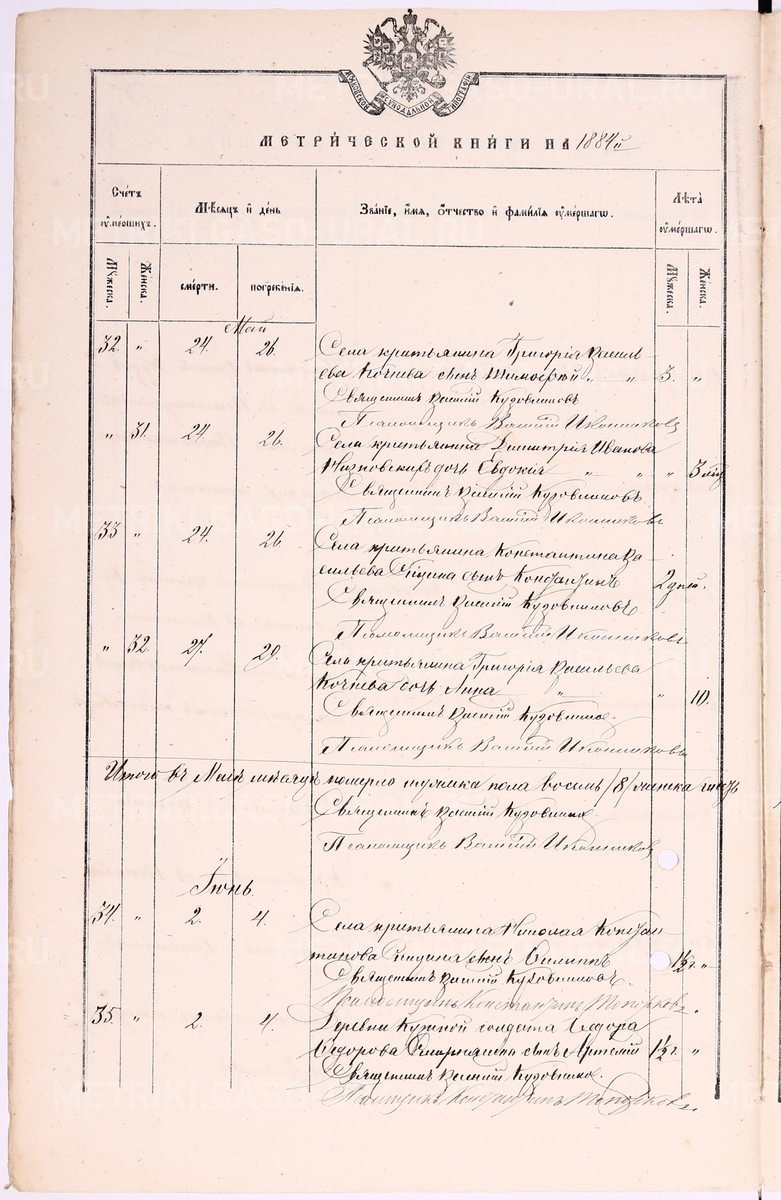 МОСКОВСКОЙ СѴНОДАЛЬНОЙ ТИПОГРАФІИ
МЕТРИ́ЧЕСКОЙ КНИ́ГИ НА 1884й
Сче́тъ ѹме́ршихъ.
Мѣ́сяцъ и де́нь
Зва́ніе, и́мя, ѻ́тчество и фами́лія ѹме́ршагѡ.
Лѣта̀ ѹме́ршагѡ.
Мꙋжеска.
Женска.
сме́рти.
погребе́нія.
Мꙋжеска.
Женска.
Май
32. " 24. 26. Села крестьянина Григорія Василь-
ева Кочнева сынъ Тимофей " " 3. "
Священникъ Василій Кузовниковъ
Псаломщикъ Василій Иконниковъ
" 31. 24. 26. Села крестьянина Димитрія Иванова
дочь Евдокія " " " 3 мѣс
Священникъ Василій Кузовниковъ.
Псаломщикъ Василій Иконниковъ
33 " 24. 26. Села крестьянина Константина Ва
сильева сынъ Константинъ 2 дней.
Священникъ Василій Кузовниковъ
Псаломщикъ Василій Иконниковъ
" 32. 27. 29. Села крестьянина Григорія Васильева
Кочнева дочь Анна " " 10.
Священникъ Василій Кузовниковъ.
Псаломщикъ Василій Иконниковъ
Итого въ Маѣ мѣсяцѣ померло мужеска пола восемь /8/ женска
Священникъ Василій Кузовниковъ.
Псаломщикъ Василій Иконниковъ
Іюнь.
34. " 2. 4. Села крестьянина Николая Констан
тинова сынъ Филиппъ 1½ г. "
Священникъ Василій Кузовниковъ.
Константинъ Топорковъ.
35. " 2. 4. Деревни солдата Ѳедора
Ѳедорова сынъ Артемій 1½ г. "
Священникъ Василій Кузовниковъ.
Константинъ Топорковъ.